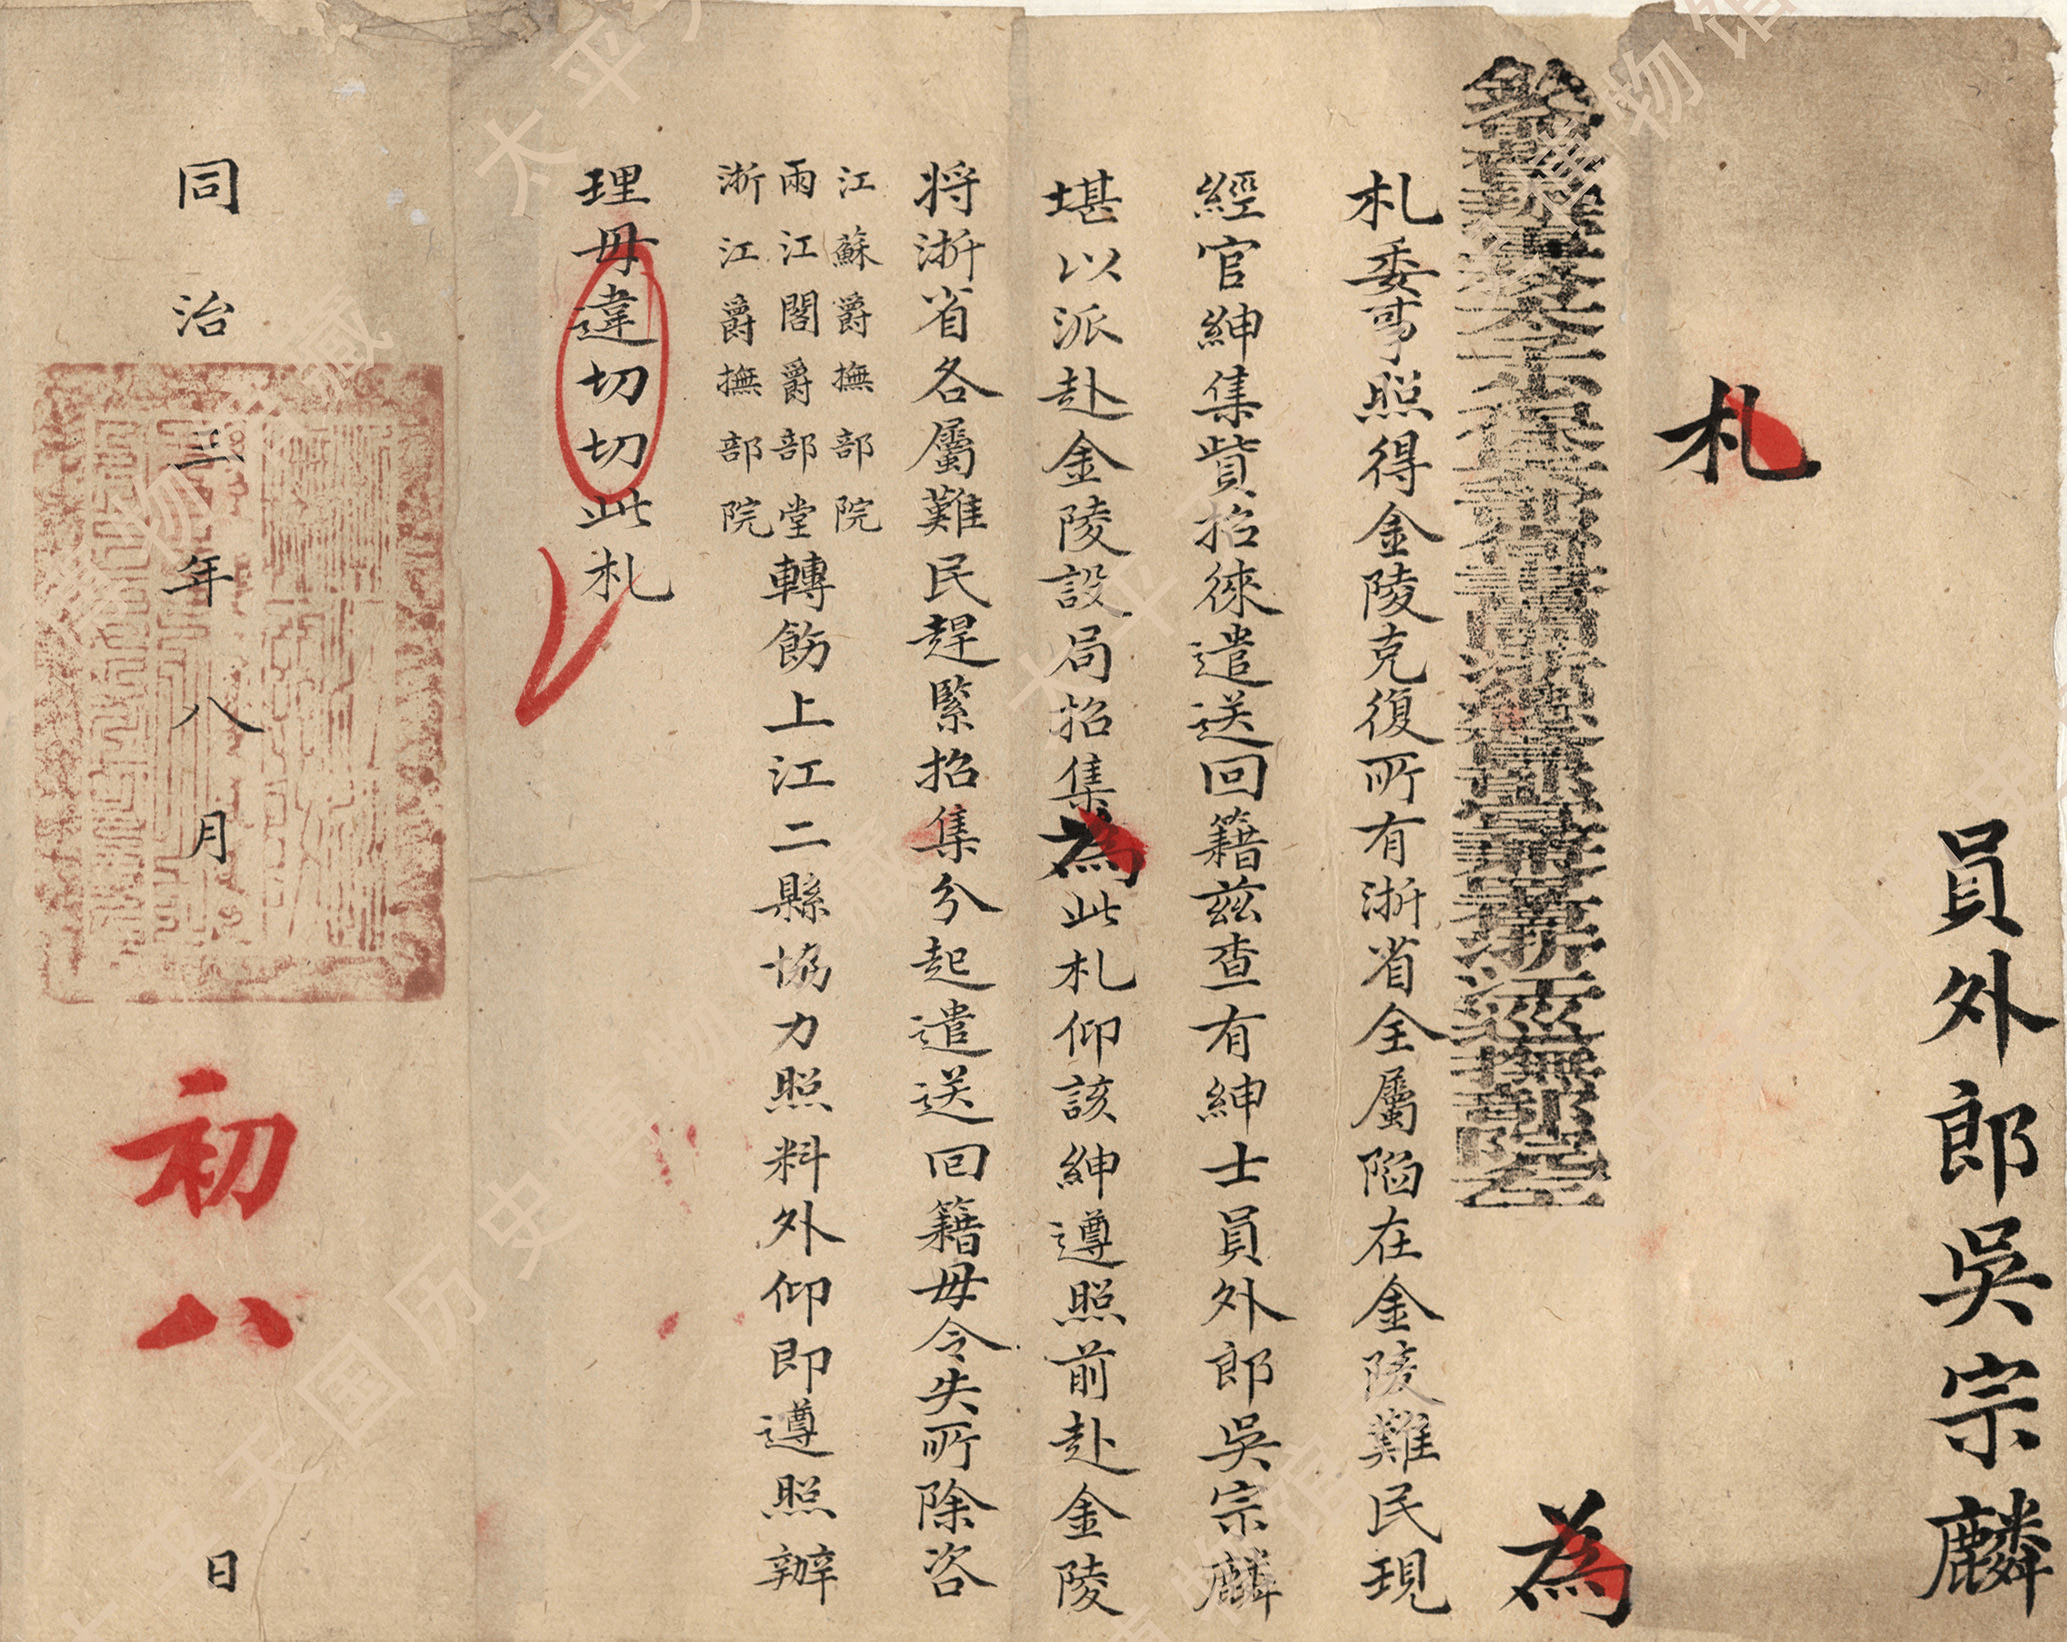 員外郎吳宗麟
札
欽命督辦軍務太子少保兵部尚書閩浙總督部堂兼署浙江巡撫部院左 為
札委事照得金陵克復所有浙省全屬陷在金陵難民現
經官紳集貲招徠遣送回籍兹查有紳士員外郎吳宗麟
堪以派赴金陵設局招集為此札仰該紳遵照前赴金陵
將浙省各屬難民趕緊招集分起遣送回籍毋令失所除咨
江蘇爵撫部院
兩江閣爵部堂轉飭上江二縣協力照料外仰即遵照辦
浙江爵撫部院
理毋違切切此札
同治三年八月初八日
太平天国历史博物馆